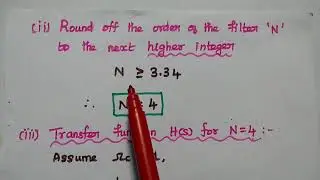 (ii) Round off the order of the filter 'N'
to the next higher integer
N ≥ 3.34
∴ N = 4
(iii) Transfer function H(s) for N=4 :-
Assume Ωc